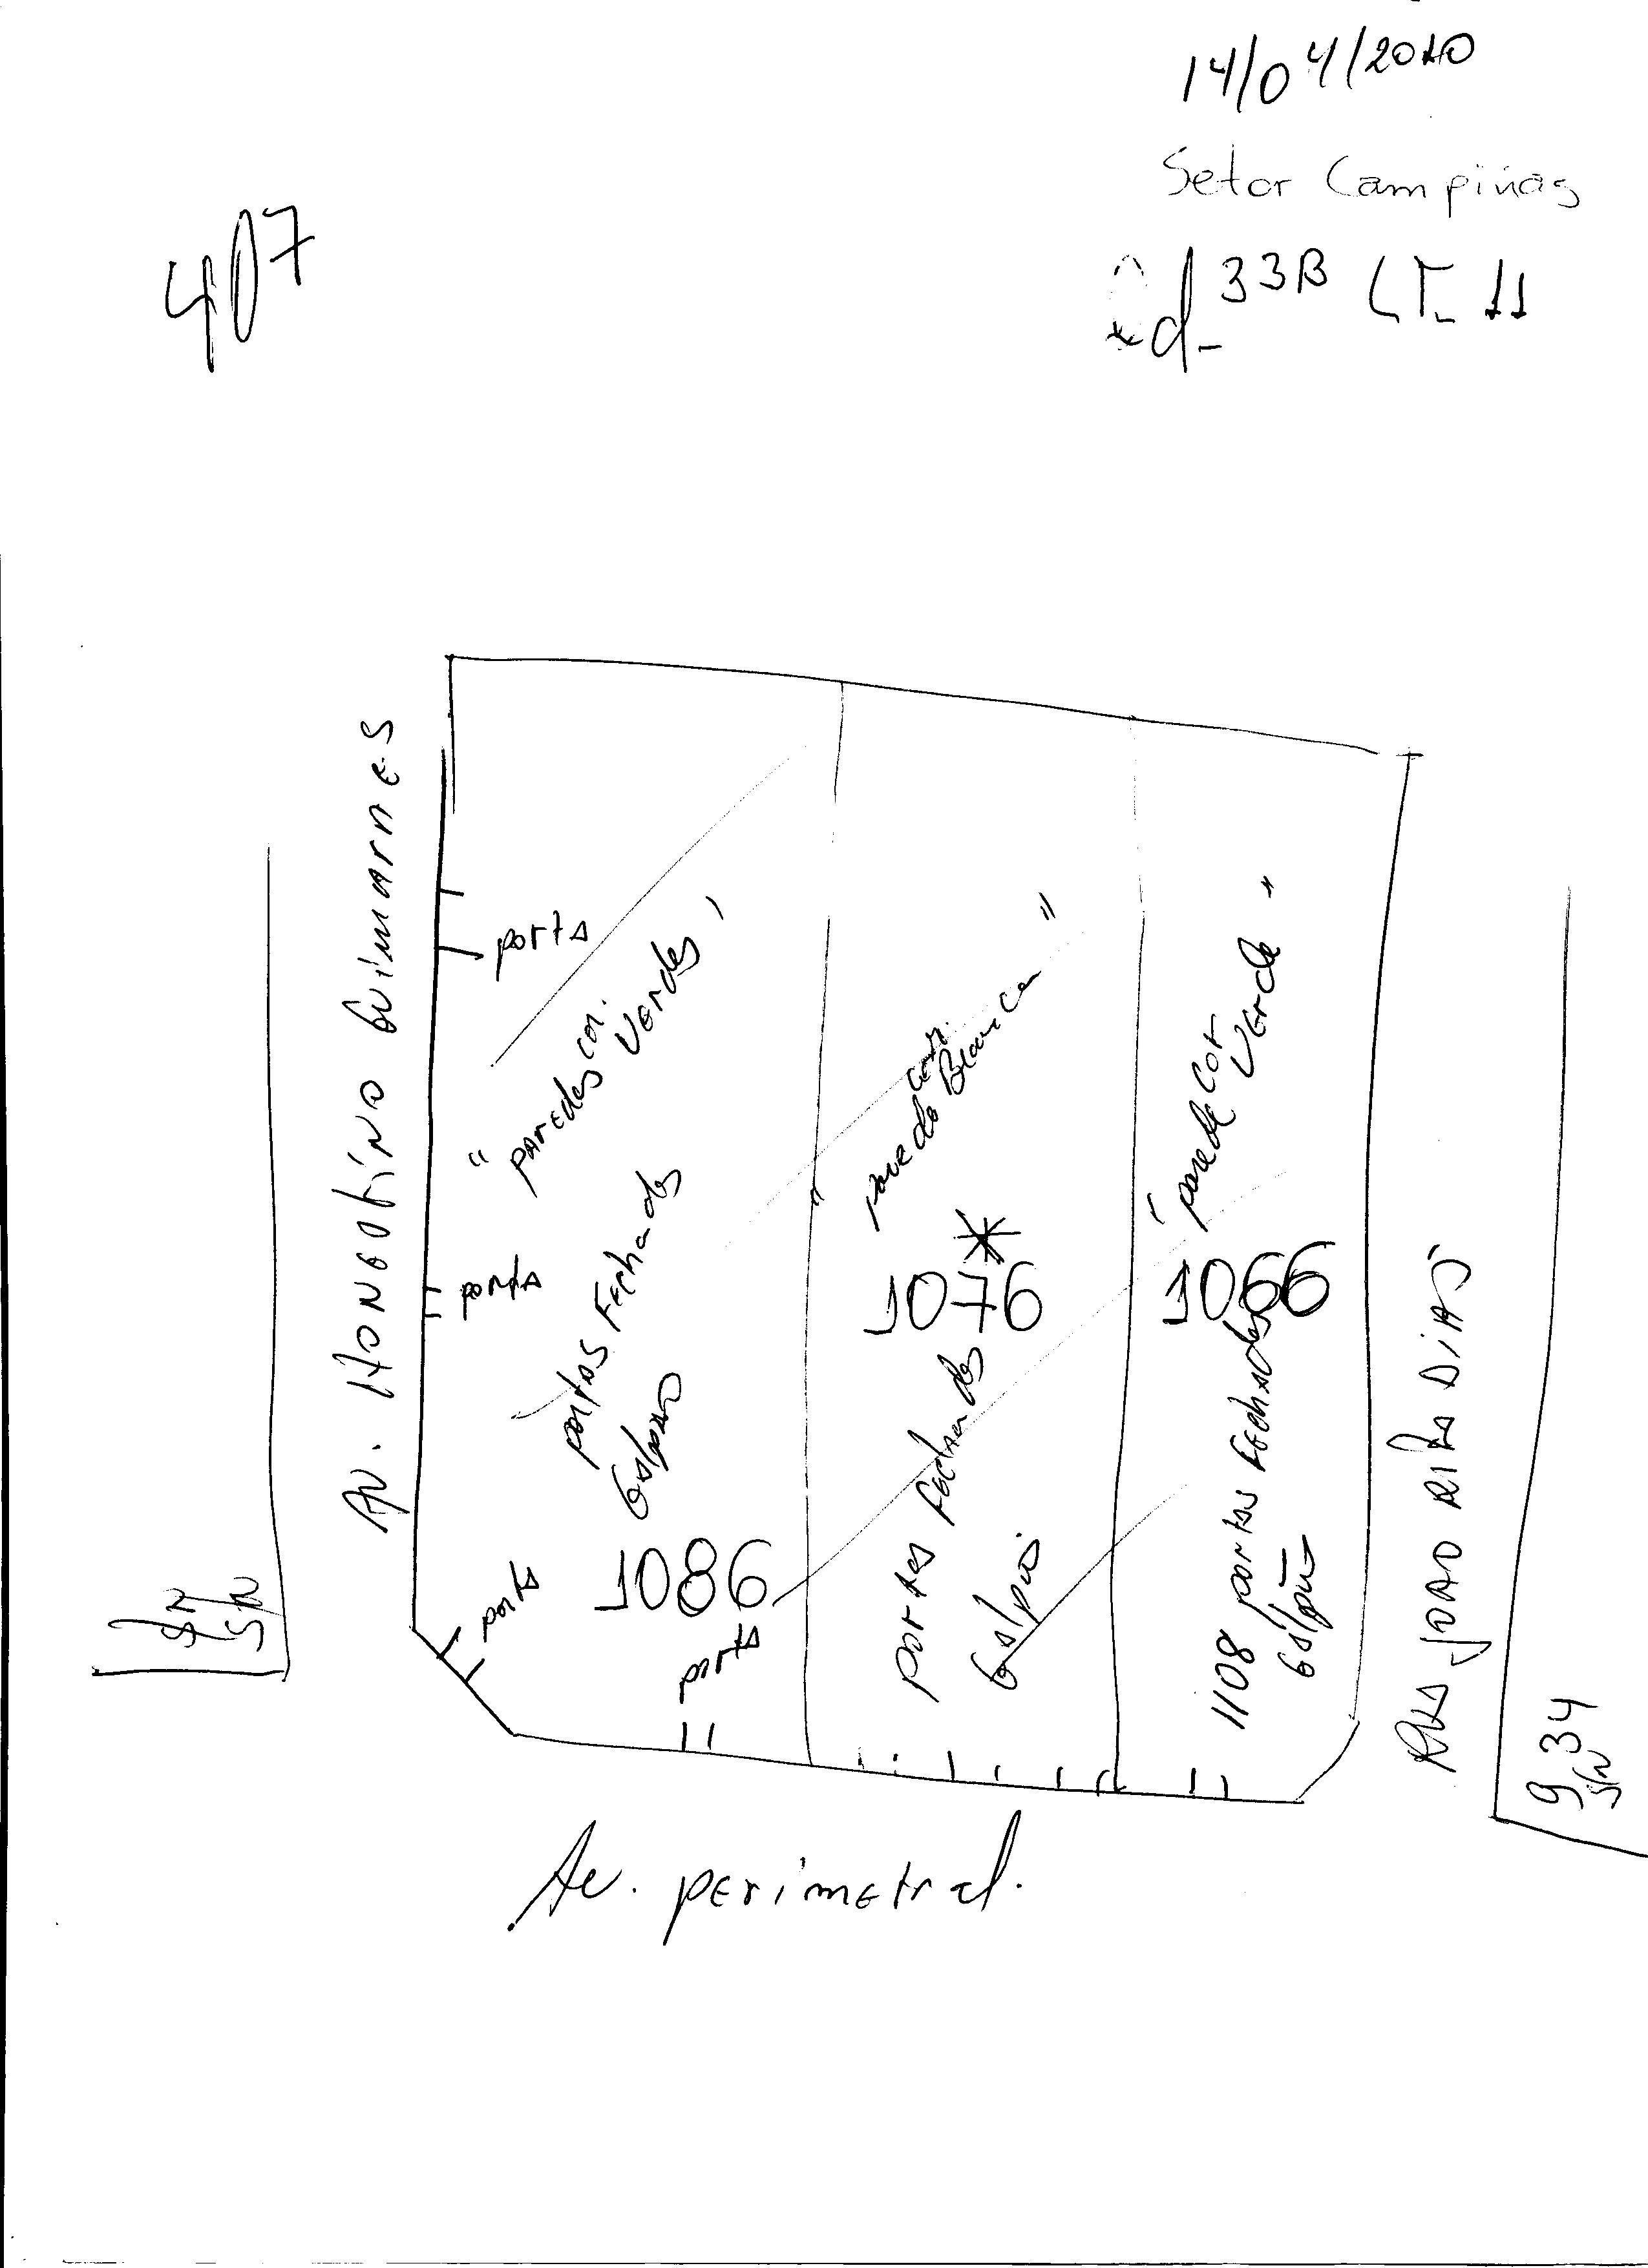 14/04/2010
Setor Campinas
407
Qd_ 33B LT_ 11
Av. HONOSTÍNO GUIMARNES
porta
" PAREDES COR.
VERDES "
porta
portAS FEChades
Galpao
porta
1086
porta
" parede COR
Branca "
*
1076
portas fechades
Galpão
" parede COR
VErde "
1066
1108 portas FEchades
Galpão
RUA JOAO RITA DIAS
SN
SN
Q 34
S/N
Av. pErimEtral.